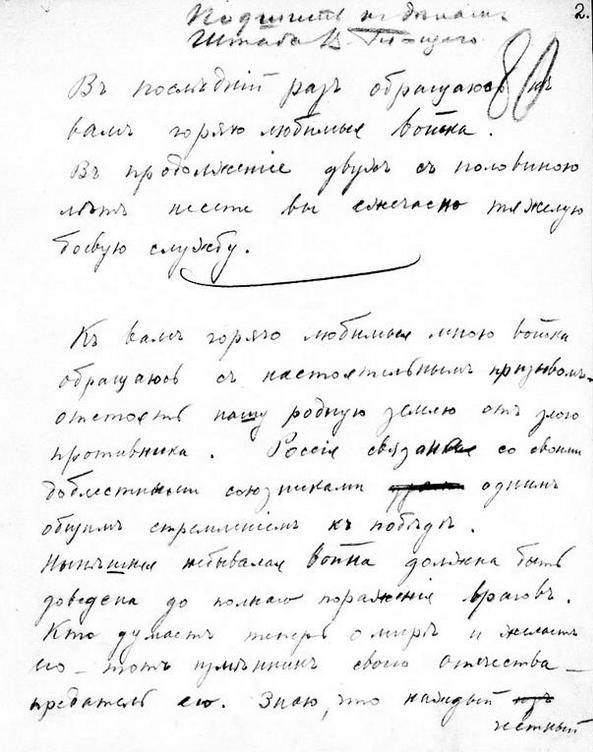 2.
Подшить къ дѣламъ
Штаба В.
80
Въ послѣдній разъ обращаюсь къ
вамъ горячо любимыя войска.
Въ продолженіе двухъ съ половиною
лѣтъ несете вы ежечасно тяжелую
боевую службу.
Къ вамъ горячо любимыя мною войска
обращаюсь съ настоятельнымъ призывомъ
отстоять нашу родную землю отъ злого
противника. Россія связанная со своими
доблестными союзниками однимъ
общимъ стремленіемъ къ побѣдѣ.
Нынѣшняя небывалая война должна быть
доведена до полнаго пораженія враговъ.
Кто думаетъ теперь о мирѣ и желаетъ
его – тотъ измѣнникъ своего отечества –
предатель его. Знаю, что каждый
честный